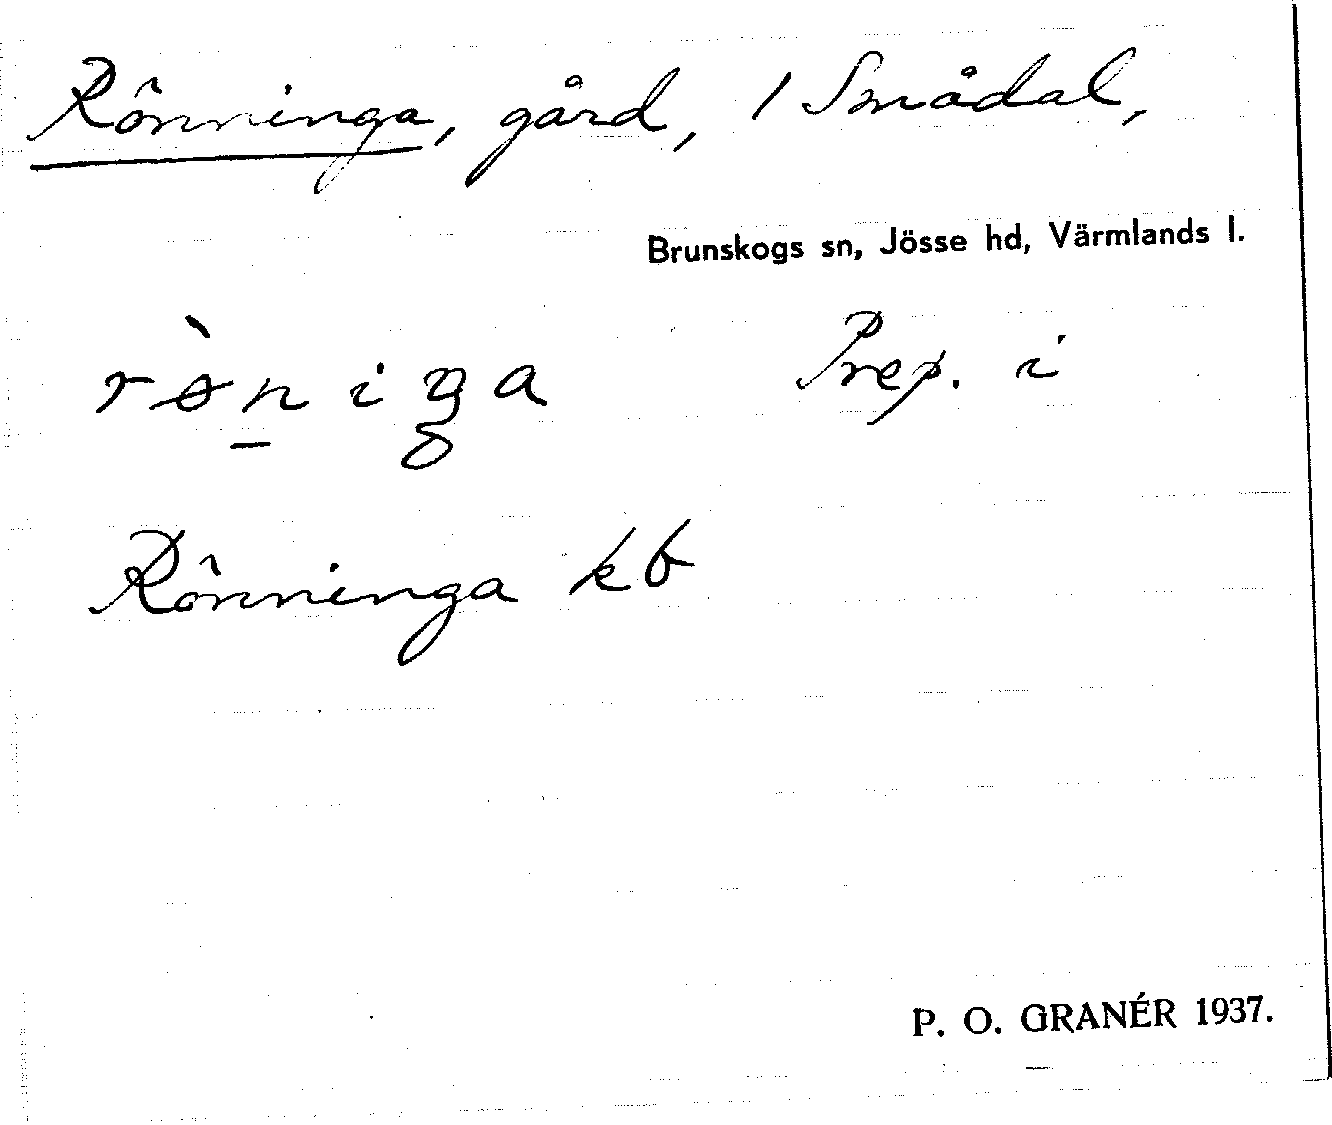 Rönninga, gård, 1 Smådal,
Brunskogs sn, Jösse hd, Värmlands l.
rɵ̀n̲iŋa Prep. i
Rönninga kb
P. O. GRANÉR 1937.